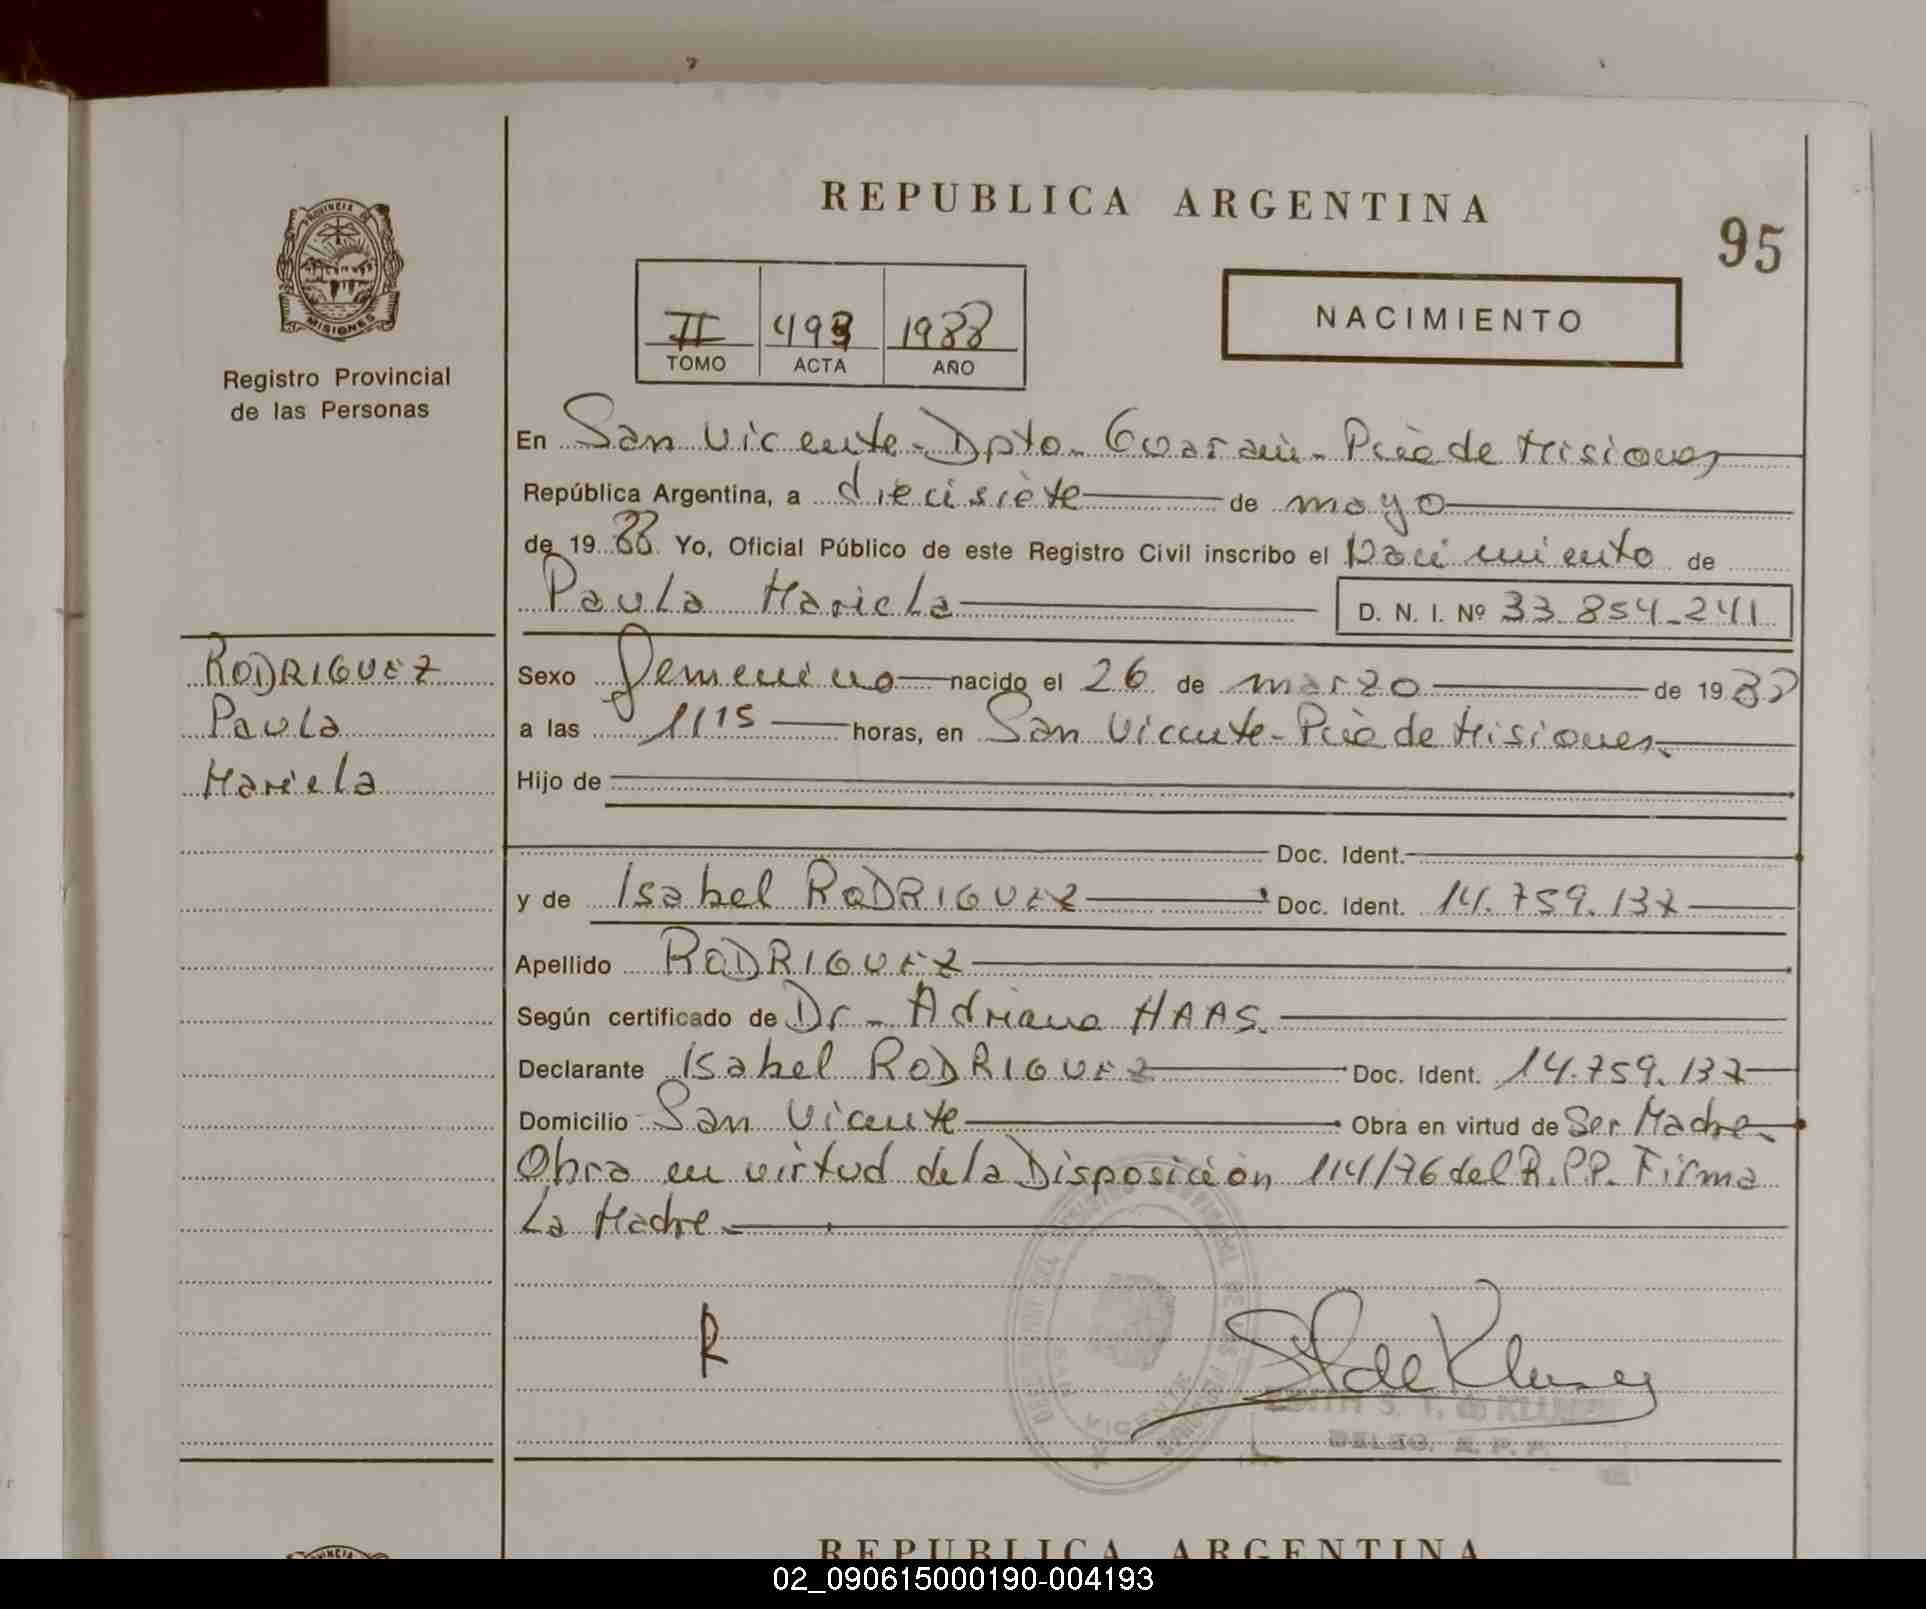 REPUBLICA ARGENTINA
95
PROVINCIA DE
MISIONES
Registro Provincial
de las Personas
II 1988
TOMO ACTA AÑO
NACIMIENTO
En San Vicente - Dpto. Guaraní - Pcia de Misiones
República Argentina, a diecisiete de mayo
de 1988 Yo, Oficial Público de este Registro Civil inscribo el Nacimiento de
Paula Mariela D. N. I. Nº 33.854.241
RODRIGUEZ
Paula
Mariela
Sexo Femenino nacido el 26 de marzo de 1988
a las 1115 horas, en San Vicente - Pcia de Misiones.
Hijo de
Doc. Ident.
y de Isabel RODRIGUEZ Doc. Ident. 14.759.137
Apellido RODRIGUEZ
Según certificado de Dr - Adriana HAAS.
Declarante Isabel RODRIGUEZ Doc. Ident. 14.759.137
Domicilio San Vicente Obra en virtud de Ser Madre.
Obra en virtud de la Disposición 114/76 del R.P.P. Firma
La Madre
R
REPUBLICA ARGENTINA
02_090615000190-004193